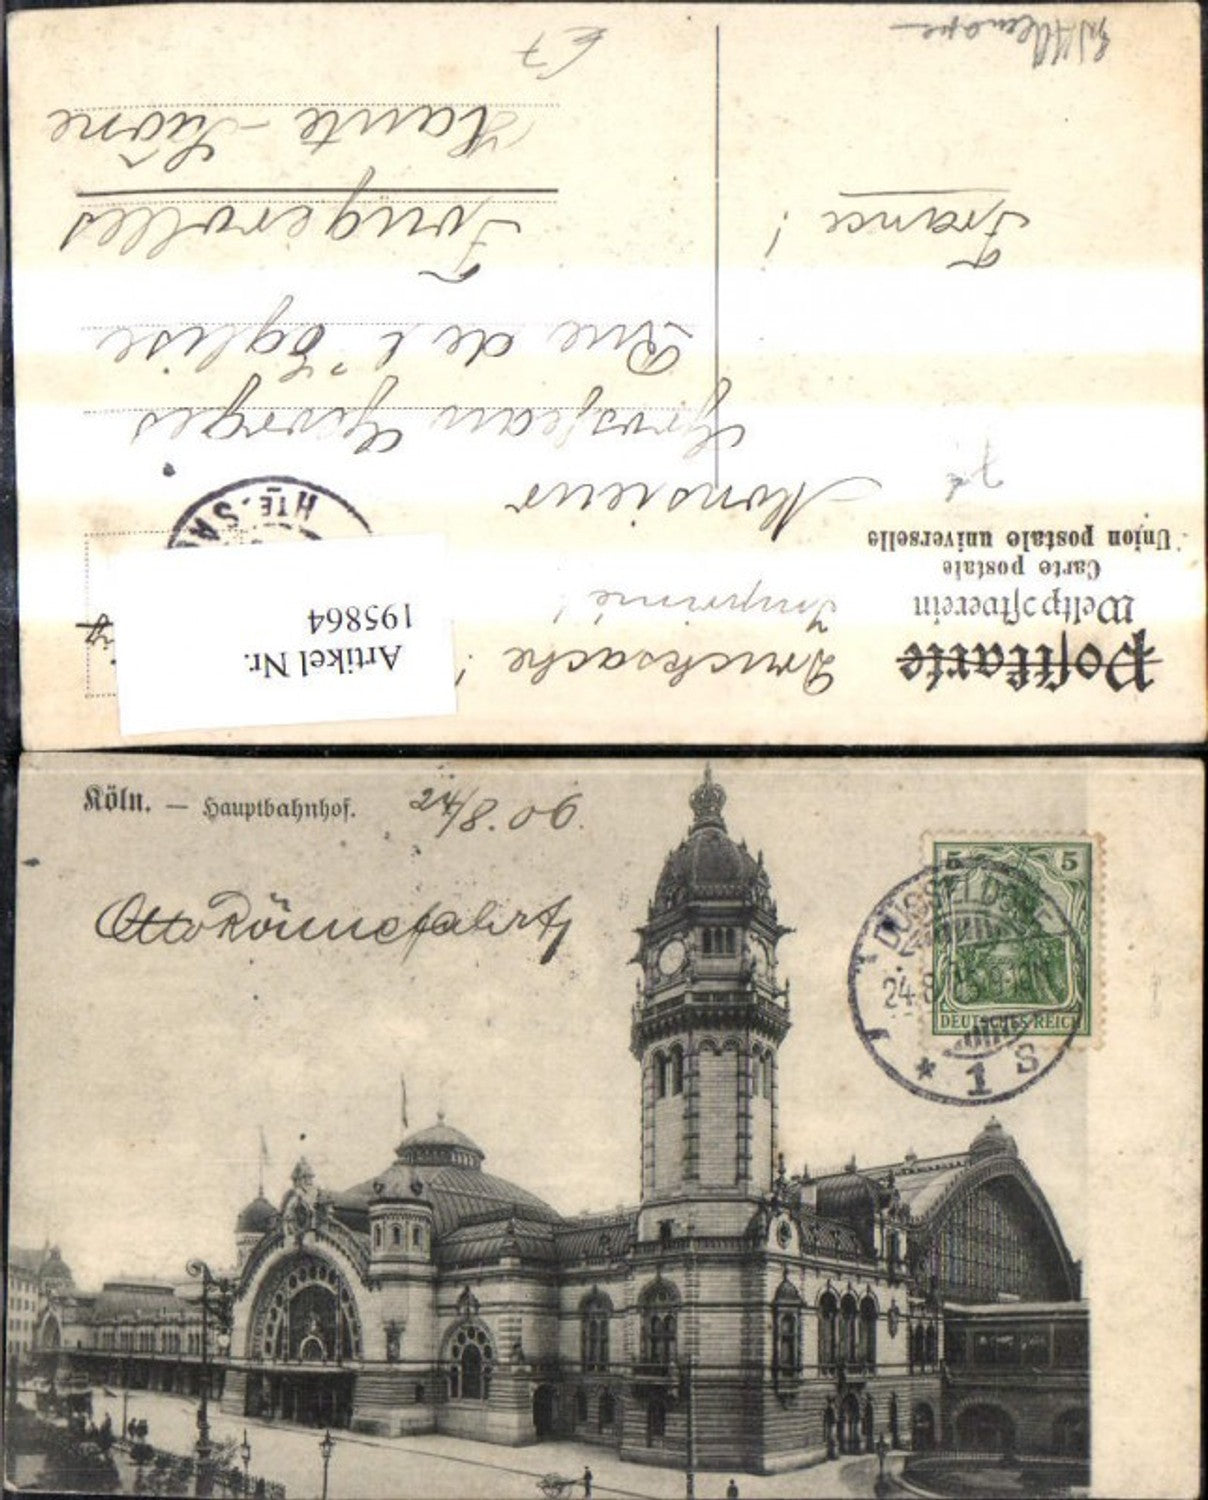 Postkarte
Weltpostverein
Carte postale
Union postale universelle
Drucksache!
Imprimé!
Artikel Nr.
195864
HTE. SA
Monsieur
Grosjean Georges
Rue de l'Église
Fougerolles
Haute-Saône
France!
Köln. — Hauptbahnhof.
24/8.06.
Otto Rönnefahrt
5 5
DEUTSCHES REICH
DÜSSELDORF
24.8
* 1 S